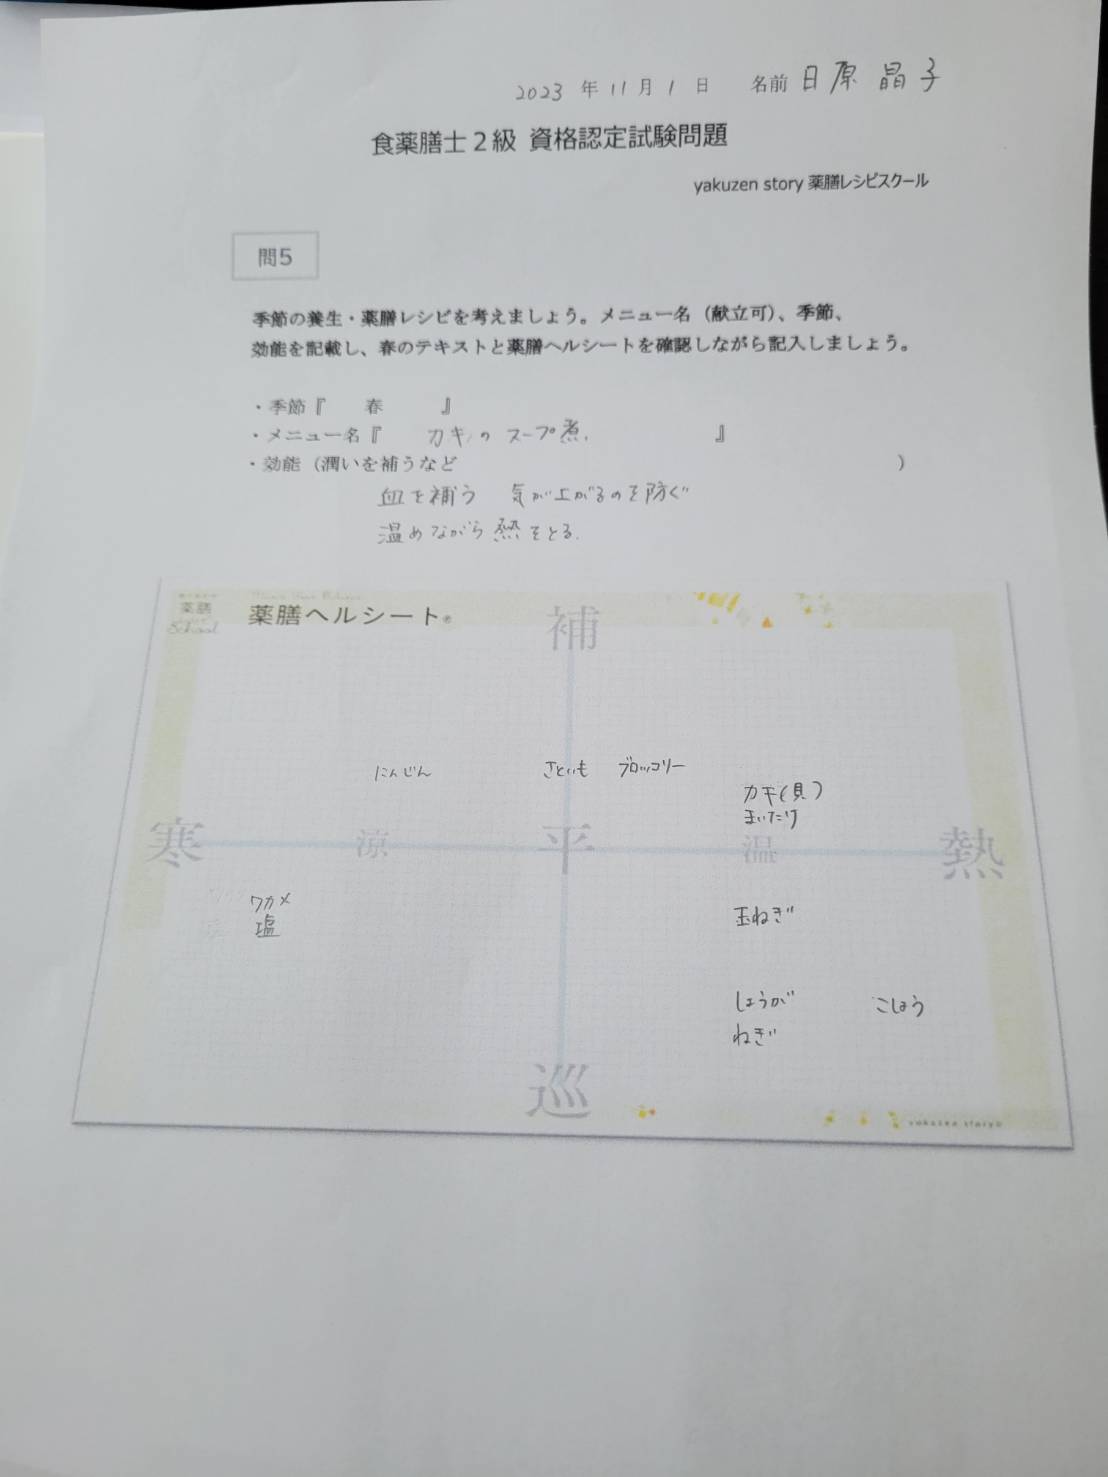 2023 年 11 月 1 日 名前 日原 晶子
食薬膳士2級 資格認定試験問題
yakuzen story 薬膳レシピスクール
問5
季節の養生・薬膳レシピを考えましょう。メニュー名（献立可）、季節、
効能を記載し、春のテキストと薬膳ヘルシートを確認しながら記入しましょう。
・季節『 春 』
・メニュー名『 カキの スープ煮. 』
・効能（潤いを補うなど ）
血を補う 気が上がるのを防ぐ
温めながら熱をとる.
薬膳
School
薬膳ヘルシート®
補
にんじん さといも ブロッコリー
カキ(貝)
まいたけ
寒 涼 平 温 熱
ワカメ 玉ねぎ
塩
しょうが こしょう
ねぎ
巡
yakuzen story®